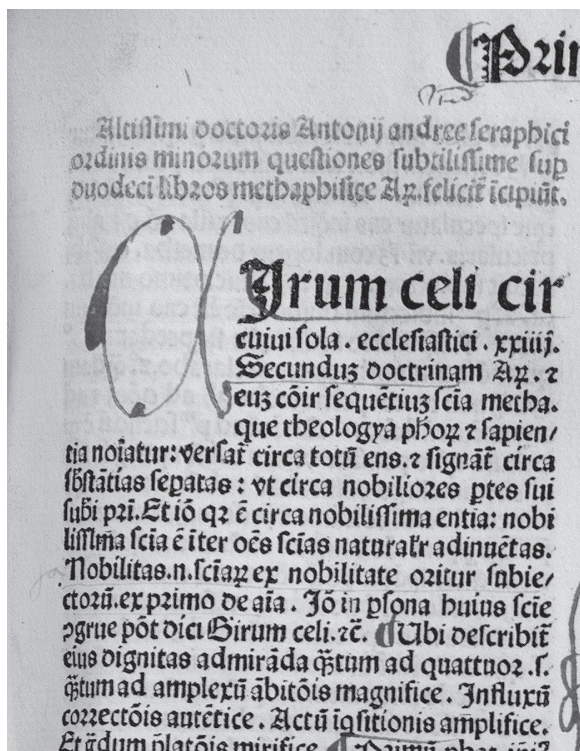 Prim
Altissimi doctoris Antonij andree seraphici
ordinis minorum questiones subtilissime sup
duodecī libros methaphisice Aꝝ. felicit̄ īcipiūt.
Girum celi cir
cuiui sola . ecclesiastici . xxiiij.
Secunduꝫ doctrinam Aꝝ. ⁊
euꝫ cōir sequētiuꝫ scīa metha.
que theologya phōꝝ ⁊ sapien/
tia noīatur: versat̄ circa totū ens. ⁊ signāt̄ circa
sb̄stātias sepatas : vt circa nobiliores ptes sui
subī pri. Et iō qꝛ ē circa nobilissima entia: nobi
lissīma scīa ē īter oēs scīas naturalr̄ adinuētas.
Nobilitas.n. scīaꝝ ex nobilitate oritur subie/
ctorū. ex primo de aīa . Iō in ꝑsona huius scīe
ꝯgrue pōt dici Girum celi. ⁊c̄. Ubi describit̄
eius dignitas admirāda qꝫ̄tum ad quattuor .s.
qꝫ̄tum ad amplexū ābitōis magnifice. Influxū
correctōis autētice. Actū īqsitionis amplifice.
platōis mirifice.